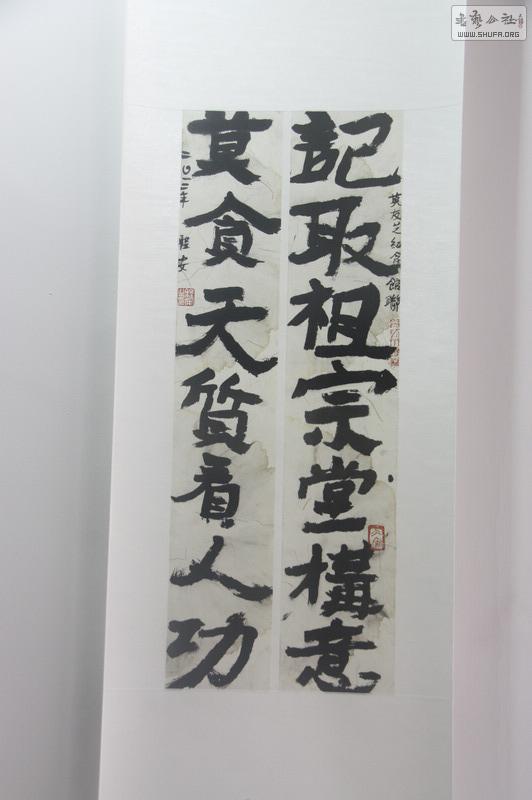 記取祖宗堂構意
莫友芝紀念館聯
莫貪天質看人功
二〇一二年
書藝公社
WWW.SHUFA.ORG